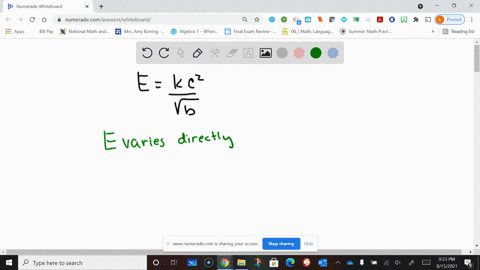 Numerade Whiteboard
numerade.com/answers/whiteboard/
Apps
Bill Pay
National Math and...
Mrs. Amy Koning -...
Algebra 1 – When...
Final Exam Review -...
IXL | Math, Language...
Summer Math Pract...
Reading list
E = kc²
√b
E varies directly
www.numerade.com is sharing your screen.
Stop sharing
Hide
Type here to search
9:23 PM
8/15/2021